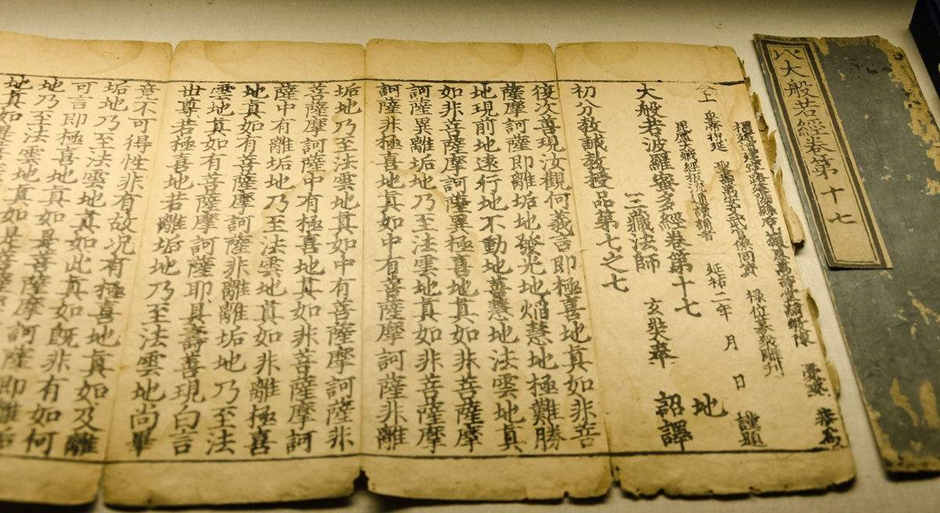 大般若經卷第十七
延祐二年 月 日 謹題
大般若波羅蜜多經卷第十七 地
三藏法師 玄奘奉 詔譯
初分教誡教授品第七之七
復次善現汝觀何義言即極喜地真如非菩
薩摩訶薩即離垢地發光地焰慧地極難勝
地現前地遠行地不動地善慧地法雲地真
如非菩薩摩訶薩異極喜地真如非菩薩摩
訶薩異離垢地乃至法雲地真如非菩薩摩
訶薩非極喜地真如中有菩薩摩訶薩非離
垢地乃至法雲地真如中有菩薩摩訶薩非
菩薩摩訶薩中有極喜地真如非菩薩摩訶
薩中有離垢地乃至法雲地真如非離極喜
地真如有菩薩摩訶薩非離離垢地乃至法
雲地真如有菩薩摩訶薩耶具壽善現白言
世尊若極喜地若離垢地乃至法雲地尚畢
竟不可得性非有故況有極喜地真如及離
垢地乃至法雲地真如此真如既非有如何
可言即極喜地真如是菩薩摩訶薩即離垢
地乃至法雲地真如是菩薩摩訶薩